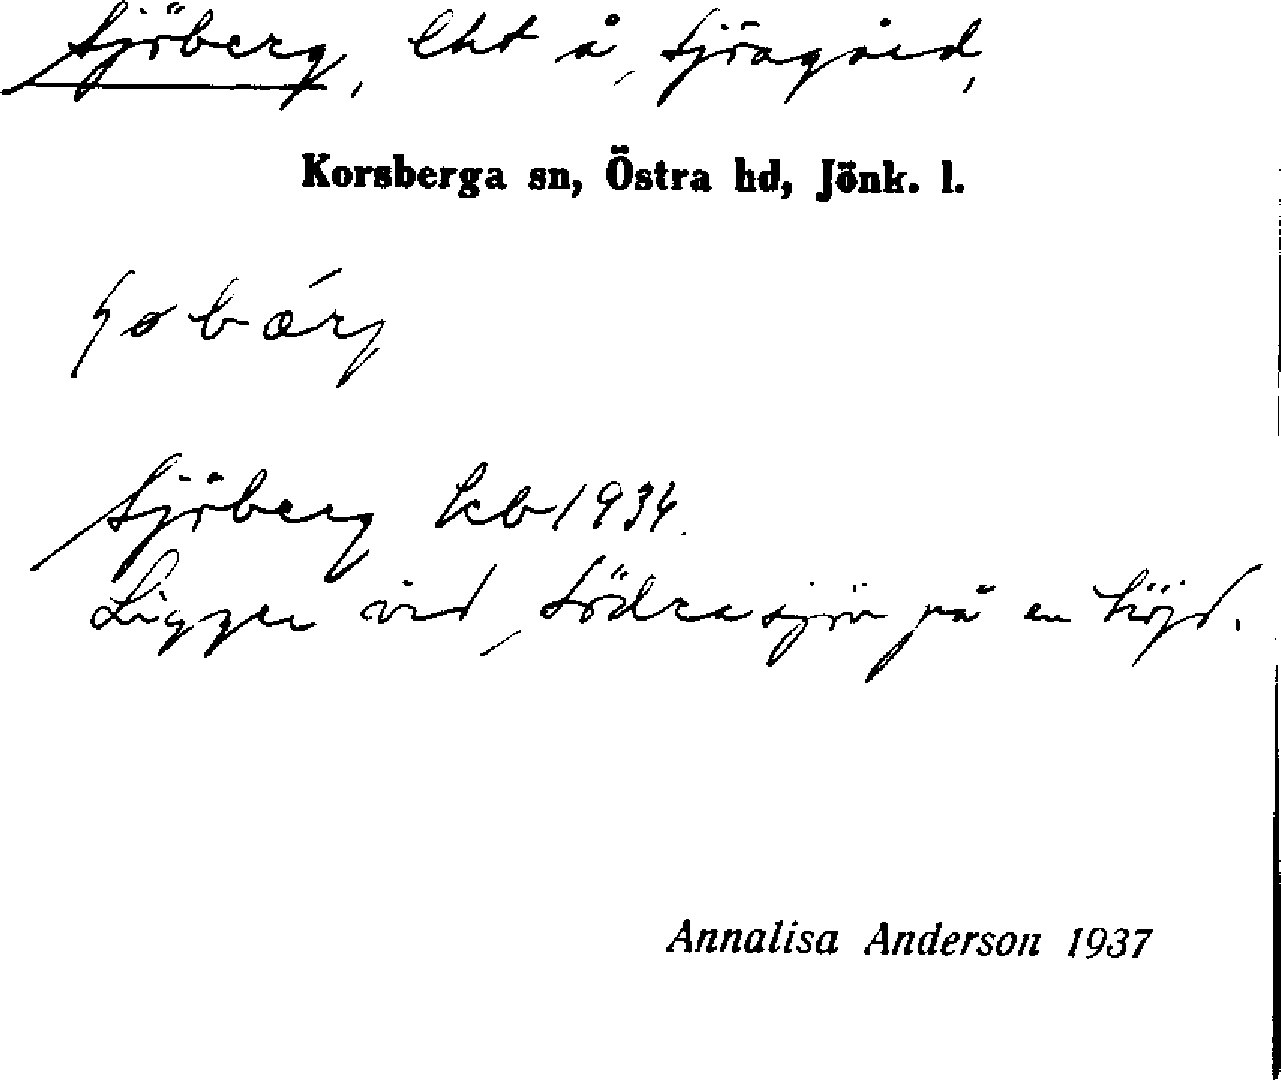 Sjöberg, lht å Sjöagård,
Korsberga sn, Östra hd, Jönk. l.
Sjöberg kb 1934.
Ligger vid Södrasjön på en höjd.
Annalisa Anderson 1937